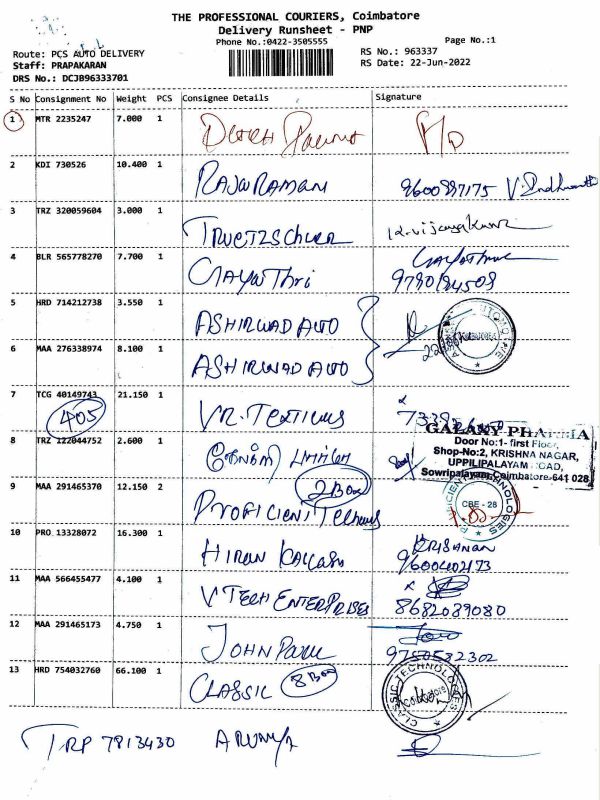 THE PROFESSIONAL COURIERS, Coimbatore
Delivery Runsheet - PNP
Phone No.:0422-3505555
Page No.:1
Route: PCS AUTO DELIVERY
RS No.: 963337
Staff: PRAPAKARAN
RS Date: 22-Jun-2022
DRS No.: DCJB96333701
S No Consignment No Weight PCS Consignee Details Signature
1 MTR 2235247 7.000 1
2 KDI 730526 10.400 1 RAJURAMAN 9600997175
3 TRZ 320059604 3.000 1 TRUETZSCHLER K.vijayakumar
4 BLR 565778270 7.700 1 GAYATHRI Gayathri
5 HRD 714212738 3.550 1 ASHIRWAD AUTO
6 MAA 276338974 8.100 1 ASHIRWAD AUTO
7 TCG 40149743 21.150 1 V.R. TEXTILES
405
GALAXY PHARMA
Door No:1- first Floor,
Shop-No:2, KRISHNA NAGAR,
UPPILIPALAYAM ROAD,
Sowripalayam,Coimbatore-641 028
8 TRZ 122044752 2.600 1
9 MAA 291465370 12.150 2 PROFICIENT 2 Box
PROFICIENT TECHNOLOGIES
CBE - 28
10 PRO 13328072 16.300 1 HIRAN KRISHNAN
9600402173
11 MAA 566455477 4.100 1 V TECH ENTERPRISES 8682089080
12 MAA 291465173 4.750 1 JOHN PAUL 9750532302
13 HRD 754032760 66.100 1 CLASSIC 8 Box
CLASSIC TECHNOLOGIES
Coimbatore
TRP 7813430